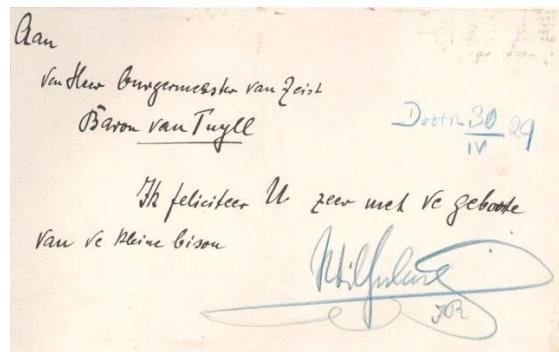 Aan
den Heer burgermeester van Zeist
Baron van Tuyll
Doorn 30
IV 29
Ik feliciteer U zeer met de geboorte
van de kleine bison
Wilhelm
IR